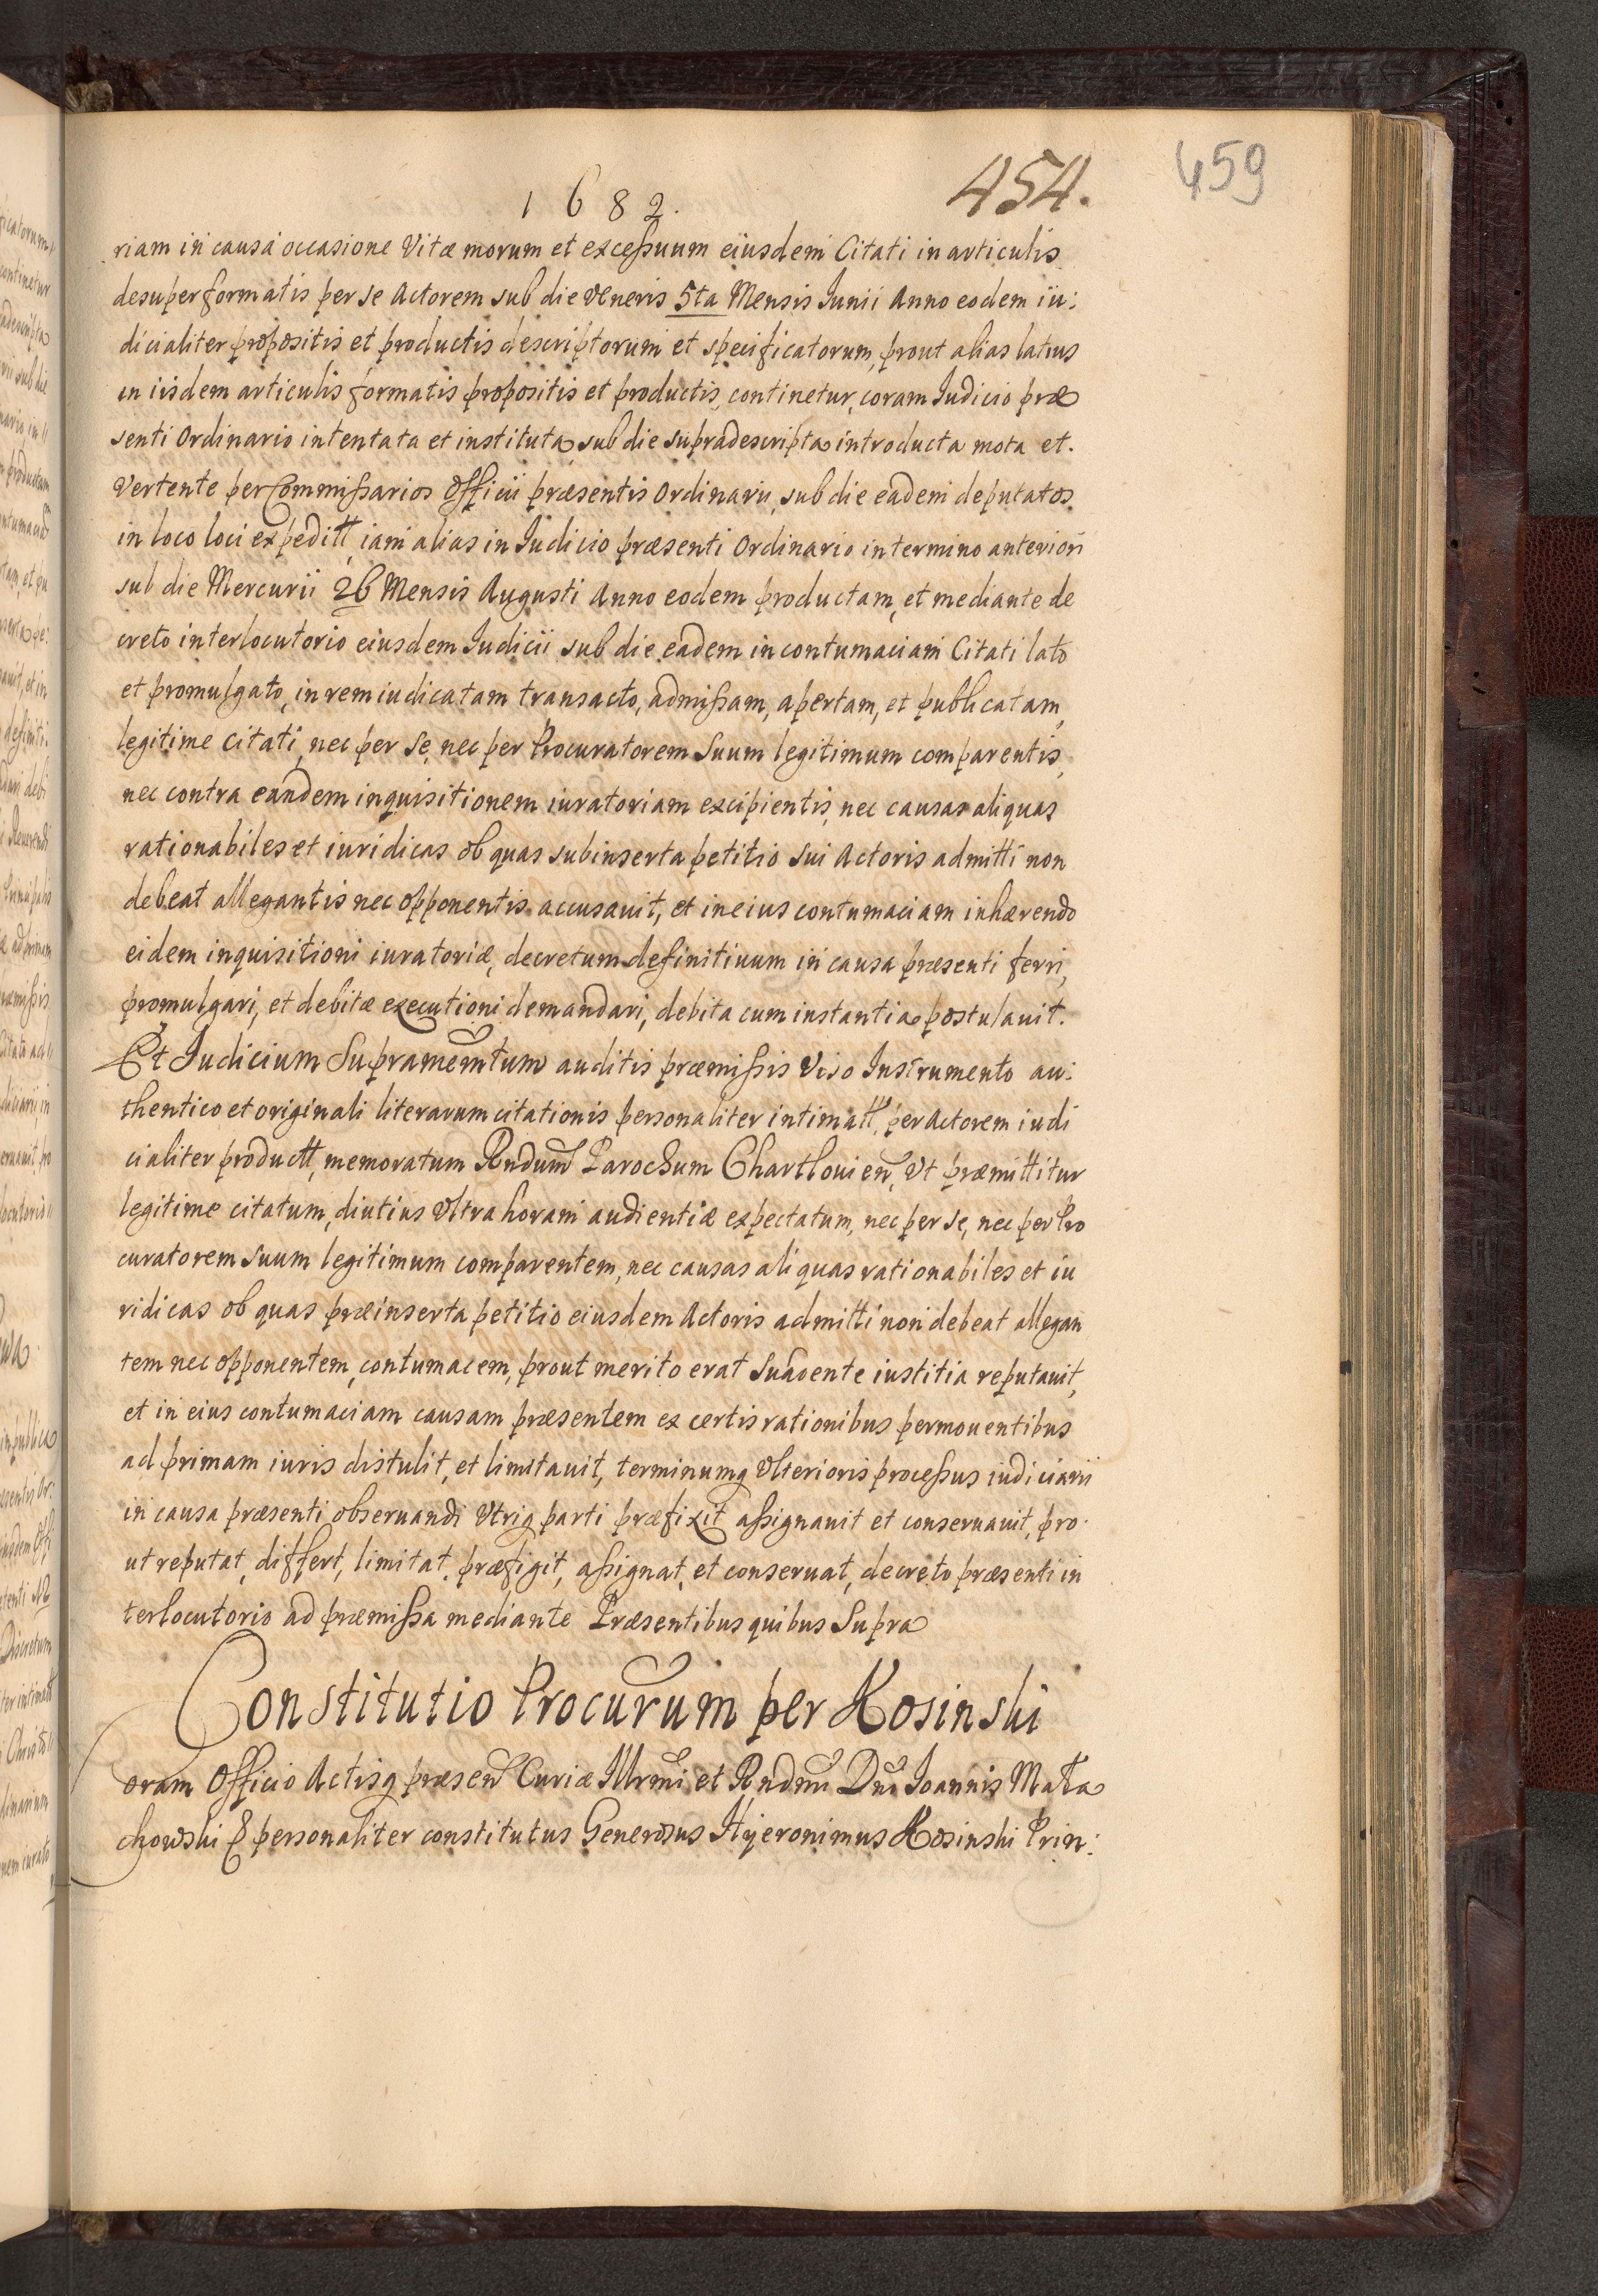 1682.
454.
459
riam in causa occasione Vitæ morum et excessuum eiusdem Citati in articulis
desuper formatis per se Actorem sub die Veneris 5ta Mensis Junii Anno eodem iu:
dicialiter propositis et productis descriptorum et specificatorum, prout alias latius
in iisdem articulis formatis propositis et productis, continetur, coram Judicio præ
senti Ordinario intentata et instituta sub die supradescripta introducta mota et.
Vertente per Commissarios Officii præsentis Ordinarii, sub die eadem deputatos
in loco loci expeditt iam alias in Judicio præsenti Ordinario in termino anteriori
sub die Mercurii 26 Mensis Augusti Anno eodem productam, et mediante de
creto interlocutorio eiusdem Judicii sub die eadem in contumaciam Citati lato
et promulgato, in rem iudicatam transacto, admissam, apertam, et publicatam,
legitime citati, nec per se, nec per Procuratorem suum legitimum comparentis,
nec contra eandem inquisitionem iuratoriam excipientis, nec causas aliquas
rationabiles et iuridicas ob quas subinserta petitio sui Actoris admitti non
debeat allegantis nec opponentis accusauit, et in eius contumaciam inhærendo
eidem inquisitioni iuratoriæ, decretum definitiuum in causa præsenti ferri,
promulgari, et debitæ executioni demandari, debita cum instantia postulauit.
Et Judicium Supramemtum auditis præmissis Viso Instrumento au:
thentico et originali literarum citationis personaliter intimatt, per Actorem iudi
cialiter productt, memoratum Rndum Parochum Chartlouien, Vt præmittitur
legitime citatum, diutius Vltra horam audientiæ expectatum, nec per se, nec per Pro
curatorem suum legitimum comparentem, nec causas aliquas rationabiles et iu
ridicas ob quas præinserta petitio eiusdem Actoris admitti non debeat allegan
tem nec opponentem, contumacem, prout merito erat suadente iustitia reputauit,
et in eius contumaciam causam præsentem ex certis rationibus permouentibus
ad primam iuris distulit, et limitauit, terminumq Vlterioris processus iudiciarii
in causa præsenti obseruandi Vtriq parti præfixit assignauit et conseruauit, pro
ut reputat, differt, limitat, præfigit, assignat, et conseruat, decreto præsenti in
terlocutorio ad præmissa mediante Præsentibus quibus Supra
Constitutio Procurum per Kosinski
Coram Officio Actisq præsen Curiæ Illrmi et Rndmi Dni Joannis Mała
chowski &c personaliter constitutus Generosus Hyeronimus Kosinski Prin: